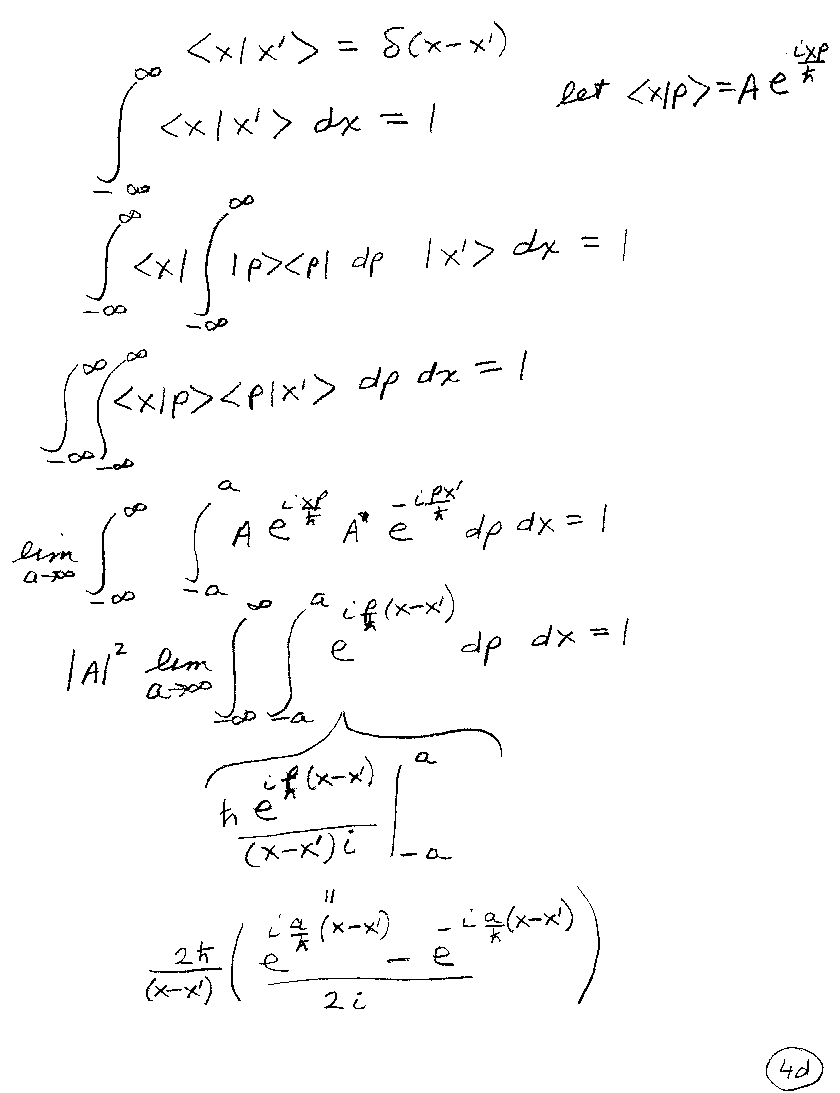 <x|x'> = δ(x-x')
let <x|p> = A e^{ixp/ħ}
∫_{-∞}^{∞} <x|x'> dx = 1
∫_{-∞}^{∞} <x| ∫_{-∞}^{∞} |p><p| dp |x'> dx = 1
∫_{-∞}^{∞} ∫_{-∞}^{∞} <x|p><p|x'> dp dx = 1
lim_{a→∞} ∫_{-∞}^{∞} ∫_{-a}^{a} A e^{ixp/ħ} A* e^{-ipx'/ħ} dp dx = 1
|A|² lim_{a→∞} ∫_{-∞}^{∞} ∫_{-a}^{a} e^{i(p/ħ)(x-x')} dp dx = 1
ħ e^{i(p/ħ)(x-x')} / (x-x')i |_{-a}^{a}
=
2ħ/(x-x') ( (e^{i(a/ħ)(x-x')} - e^{-i(a/ħ)(x-x')}) / 2i )
4d